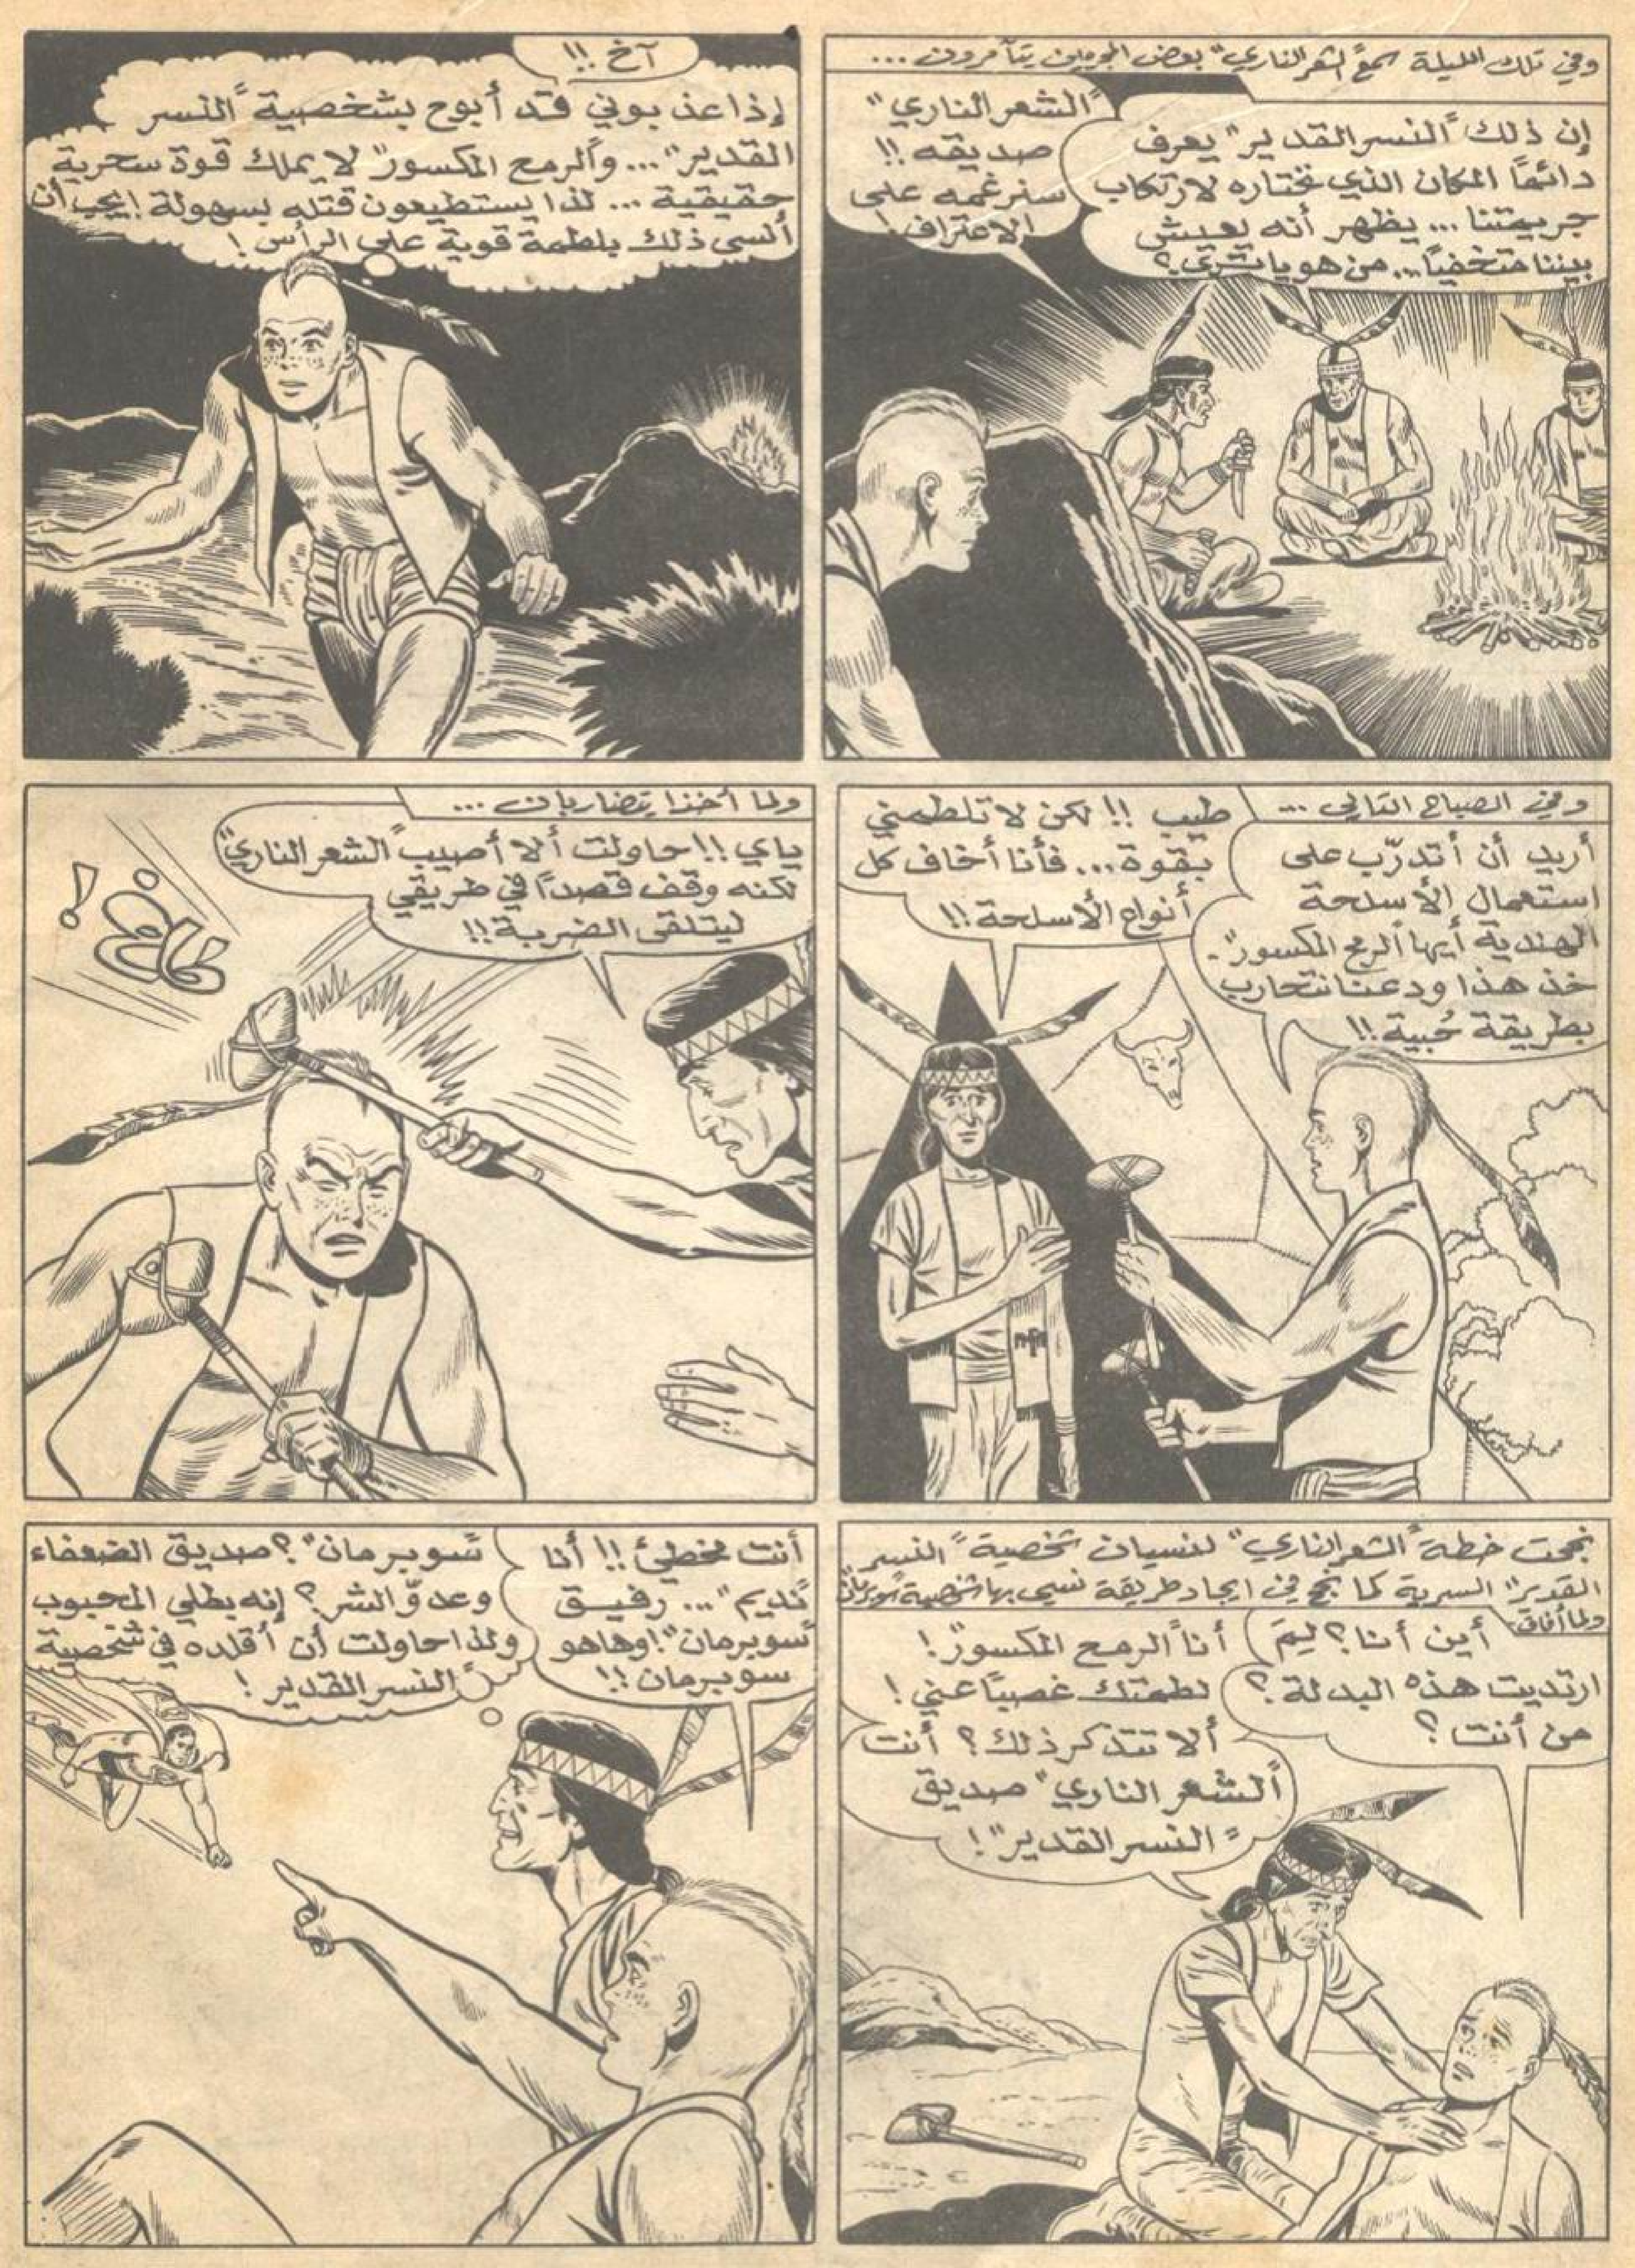 وفي تلك الليلة سمع "الشعر الناري" بعض المجرمين يتآمرون ...
إن ذلك "النسر القدير" يعرف
دائماً المكان الذي نختاره لارتكاب
جريمتنا ... يظهر أنه يعيش
بيننا متخفياً ... من هو يا ترى ؟
"الشعر الناري"
صديقه !!
سنرغمه على
الاعتراف !
آخ !!
إذا عذبوني قد أبوح بشخصية "النسر
القدير" ... و"الرمح المكسور" لا يملك قوة سحرية
حقيقية ... لذا يستطيعون قتله بسهولة ! يجب أن
أنسى ذلك بلطمة قوية على الرأس !
وفي الصباح التالي ...
أريد أن أتدرّب على
استعمال الأسلحة
الهندية أيها "الرمح المكسور" .
خذ هذا ودعنا نتحارب
بطريقة حُبية !!
طيب !! لكن لا تلطمني
بقوة ... فأنا أخاف كل
أنواع الأسلحة !!
ولما أخذا يتضاربان ...
ياي !! حاولت ألا أصيب "الشعر الناري"
لكنه وقف قصداً في طريقي
ليتلقى الضربة !!
نجحت خطة "الشعر الناري" لنسيان شخصية "النسر
القدير" السرية كما نجح في ايجاد طريقة نسي بها شخصية "سوبرمان"
ولما أفاق :
أين أنا ؟ لِمَ
ارتديت هذه البدلة ؟
من أنت ؟
أنا "الرمح المكسور" !
لطمتك غصباً عني !
ألا تتذكر ذلك ؟ أنت
"الشعر الناري" صديق
"النسر القدير" !
أنت مخطئ !! أنا
"نديم" ... رفيق
"سوبرمان" ! وها هو
سوبرمان !!
"سوبرمان" ؟ صديق الضعفاء
وعدوّ الشر ؟ إنه بطلي المحبوب
ولذا حاولت أن أقلده في شخصية
"النسر القدير" !